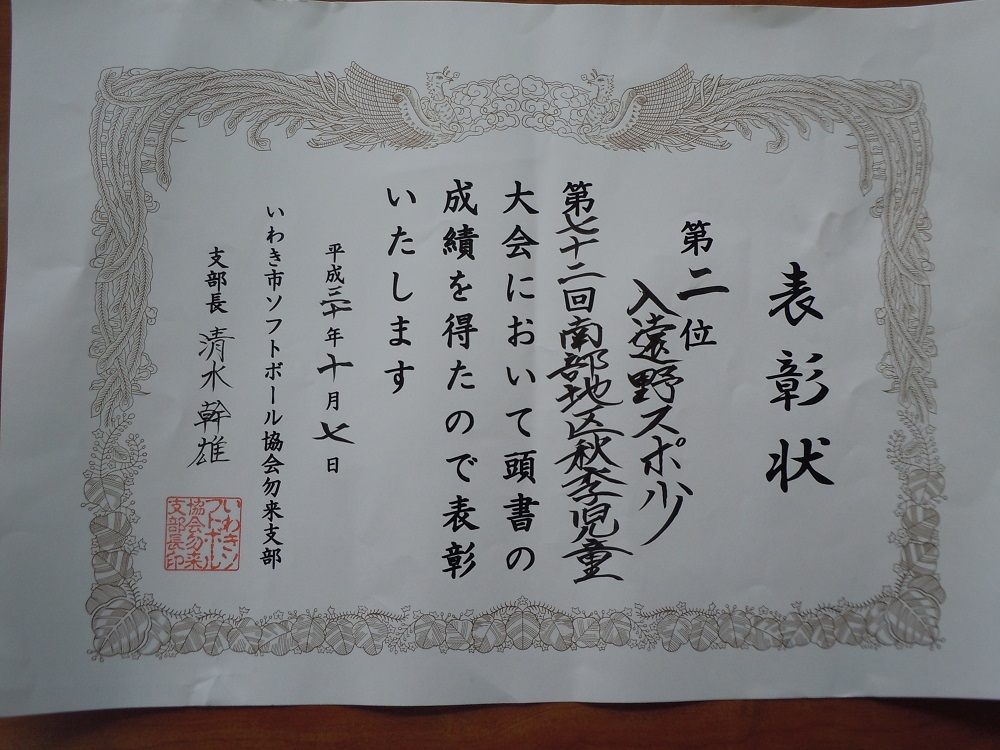 表彰状
第二位
入遠野スポ少
第七十二回南部地区秋季児童
大会において頭書の
成績を得たので表彰
いたします
平成三十年十月七日
いわき市ソフトボール協会勿来支部
支部長 清水幹雄
いわきソ
フトボール
協会勿来
支部長印